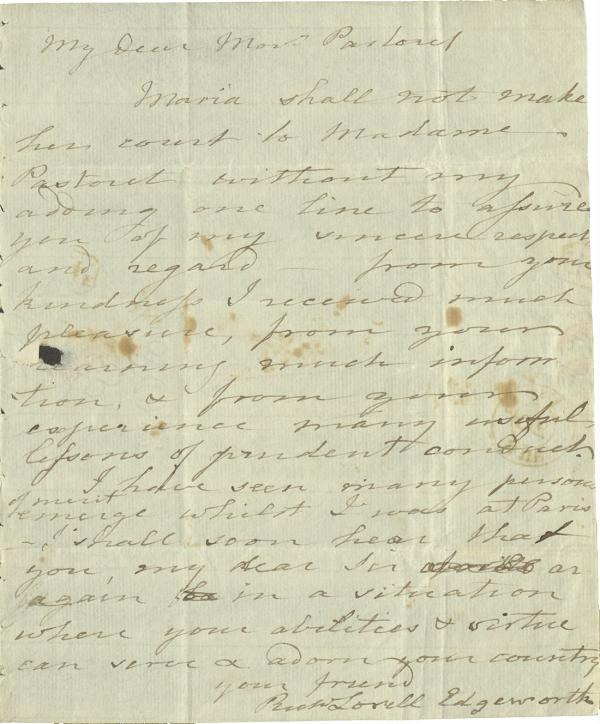 My Dear Monr. Pastoret
Maria shall not make
her court to Madame
Pastoret without my
adding one line to assure
you of my sincere respect
and regard — from your
kindness I received much
pleasure, from your
learning much inform
tion, & from your
experience many useful
lessons of prudent conduct.
I have seen many persons
of merit
emerge whilst I was at Paris
— I shall soon hear that
you, my dear Sir ar
again in a situation
where your abilities & virtue
can serve & adorn your country
your friend
Richd Lovell Edgeworth